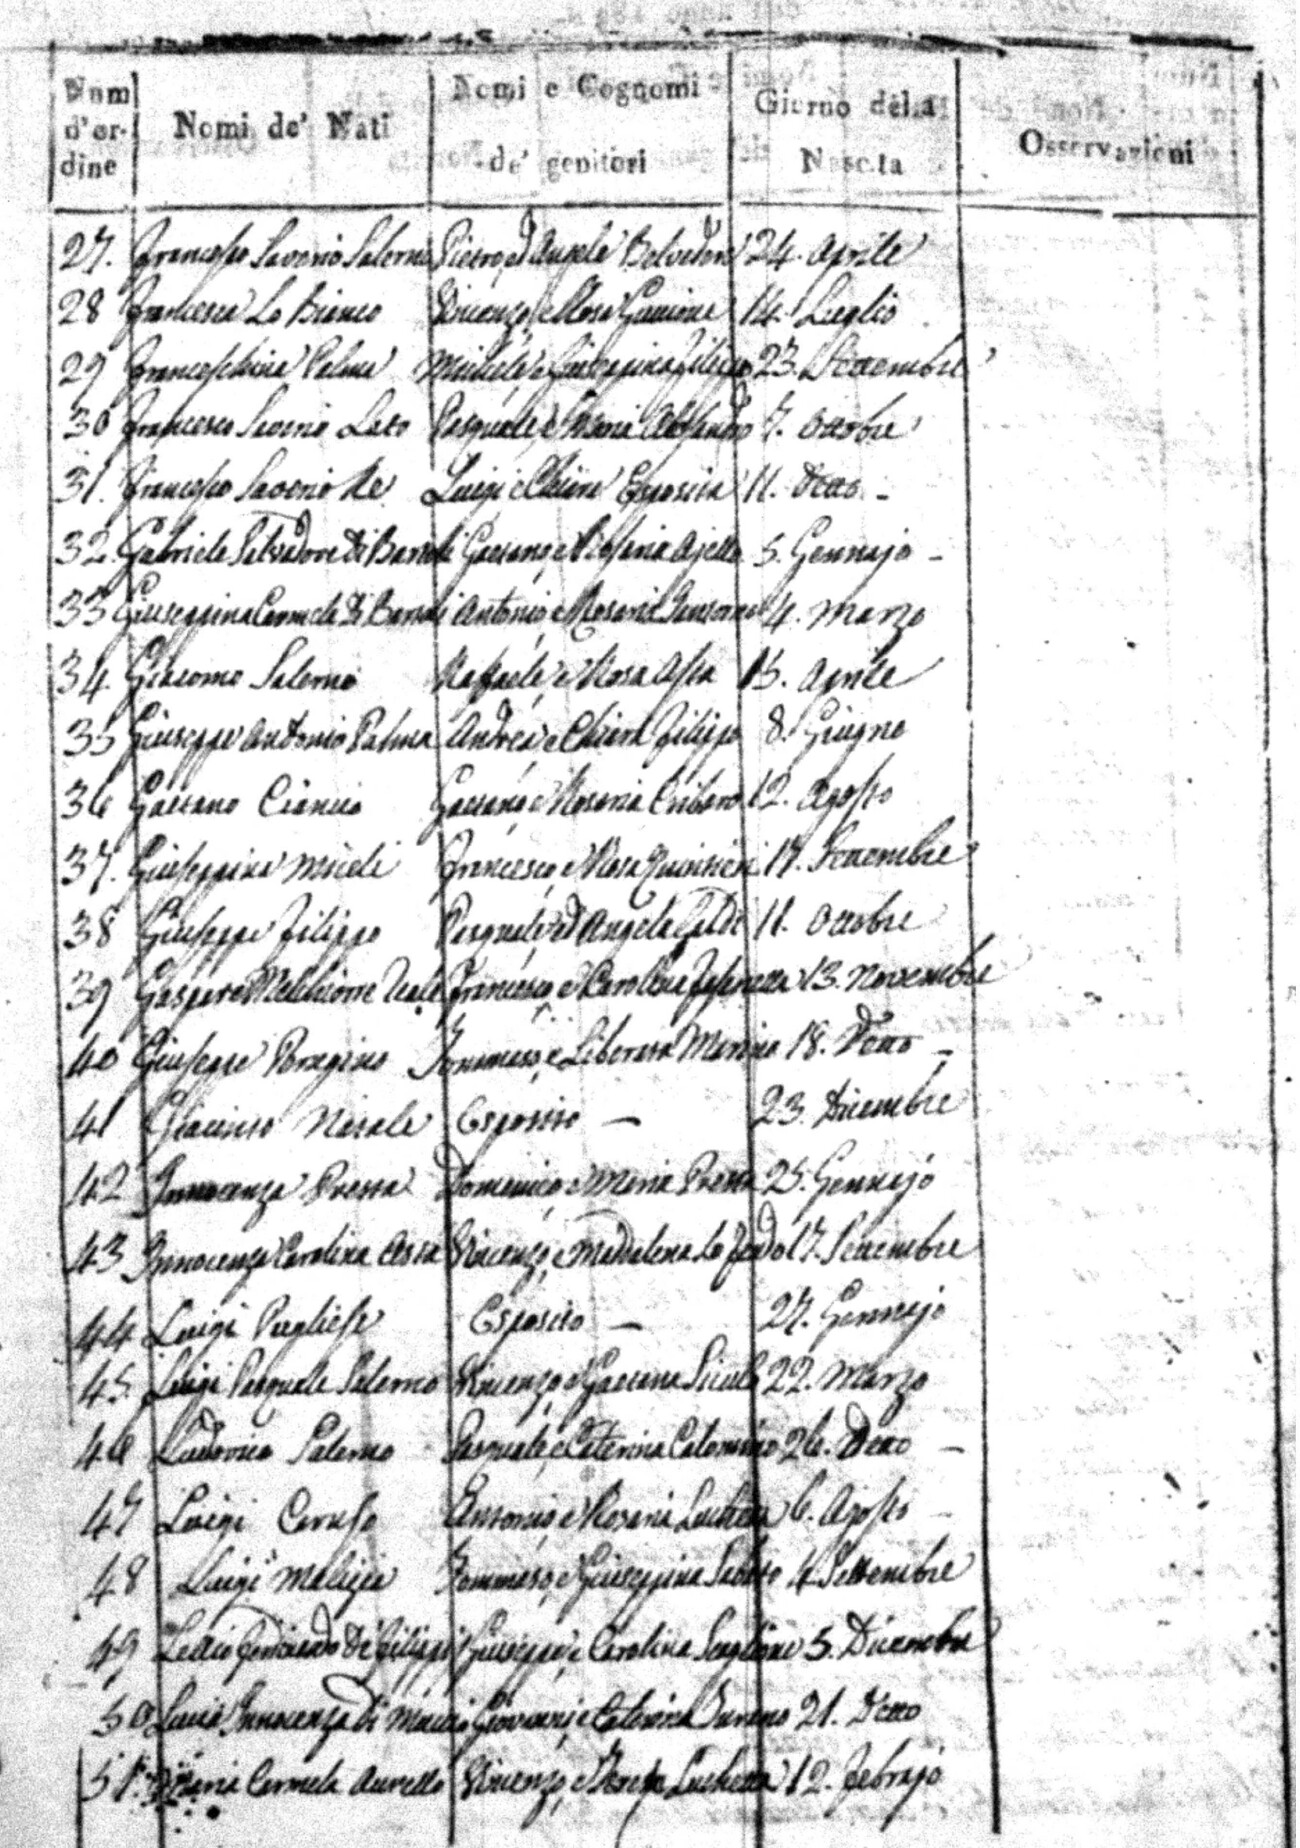 Num d'ordine Nomi de' Nati Nomi e Cognomi de' genitori Giorno della Nascita Osservazioni
27. Francesco Saverio Salerno Pietro, ed Angela Belvedere 24. Aprile
28 Francesca Lo Bianco Vincenzo, e Rosa Guccione 14. Luglio
29 Franceschina Palma Michele e Giuseppina Filippo 23. Settembre
30 Francesco Saverio Lato Pasquale, e Maria 7. Ottobre
31. Francesco Saverio Re Luigi e Chiara Esposita 11. Detto -
32. Gabriele Salvadore Di Bartoli Gaetano, e Stefania Ajello 5. Gennajo -
33 Giuseppina Carmela Di Bartoli Antonio, e Rosaria Sansone 4. Marzo
34. Giacomo Salerno Raffaele, e Rosa Asta 15. Aprile
35 Giuseppe Antonio Palma Andrea, e Chiara Filippo 8. Giugno
36 Gaetano Ciancio Gaetano, e Rosaria Cribaro 12. Agosto
37. Giuseppina Miceli Francesco, e Rosa 17. Settembre
38 Giuseppe Filippo Pasquale, ed Angela Caldi 11. Ottobre
39 Gaspare Melchiorre Francesco, e Carolina 13. Novembre
40 Giuseppe Perugino Tommaso, e Liberata Marino 18. Detto -
41 Giacinto Natale Esposito — 23. Dicembre
42 Innocenza Presta Domenico, e Maria Presta 25. Gennajo
43 Innocenza Carolina Costa Vincenzo, e Maddalena Lo Feudo 17. Settembre
44 Luigi Pugliese Esposito — 27. Gennajo
45. Luigi Pasquale Salerno Vincenzo, e Gaetana Siciali 22. Marzo
46 Ludovico Salerno Pasquale, e Caterina Colonnino 26. Detto —
47 Luigi Caruso Antonio, e Rosaria Luchetta 6. Agosto —
48 Luigi Malizia Tommaso, e Giuseppina Sabato 4 Settembre
49 Ferdinando Di Filippi Giuseppe, e Carolina Scaglione 5. Dicembre
50 Lucia Innocenza Di Muccio Giovanni, e Caterina 21. Detto
51. Maria Carmela Aurello Vincenzo, e Teresa Luchetta 12. Febrajo